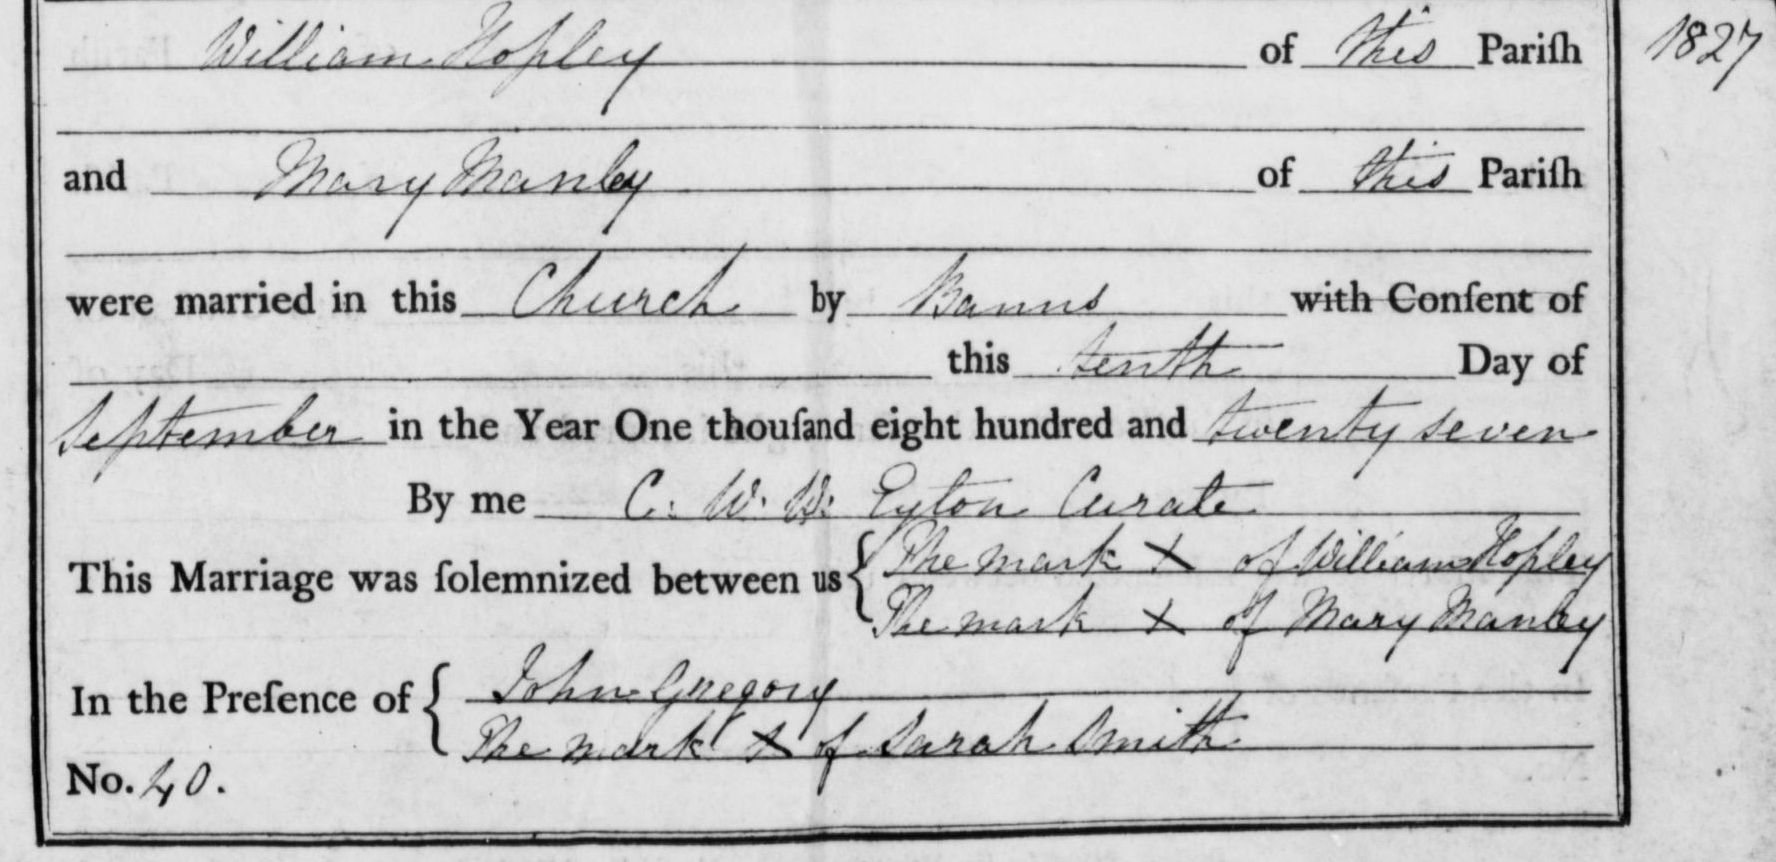 William Hopley of this Pariſh 1827
and Mary Manley of this Pariſh
were married in this Church by Banns with Conſent of
this tenth Day of
September in the Year One thouſand eight hundred and twenty seven
By me C. W. W. Eyton Curate
This Marriage was ſolemnized between us { The mark X of William Hopley
The mark X of Mary Manley
In the Preſence of { John Gregory
The mark X of Sarah Smith
No. 40.